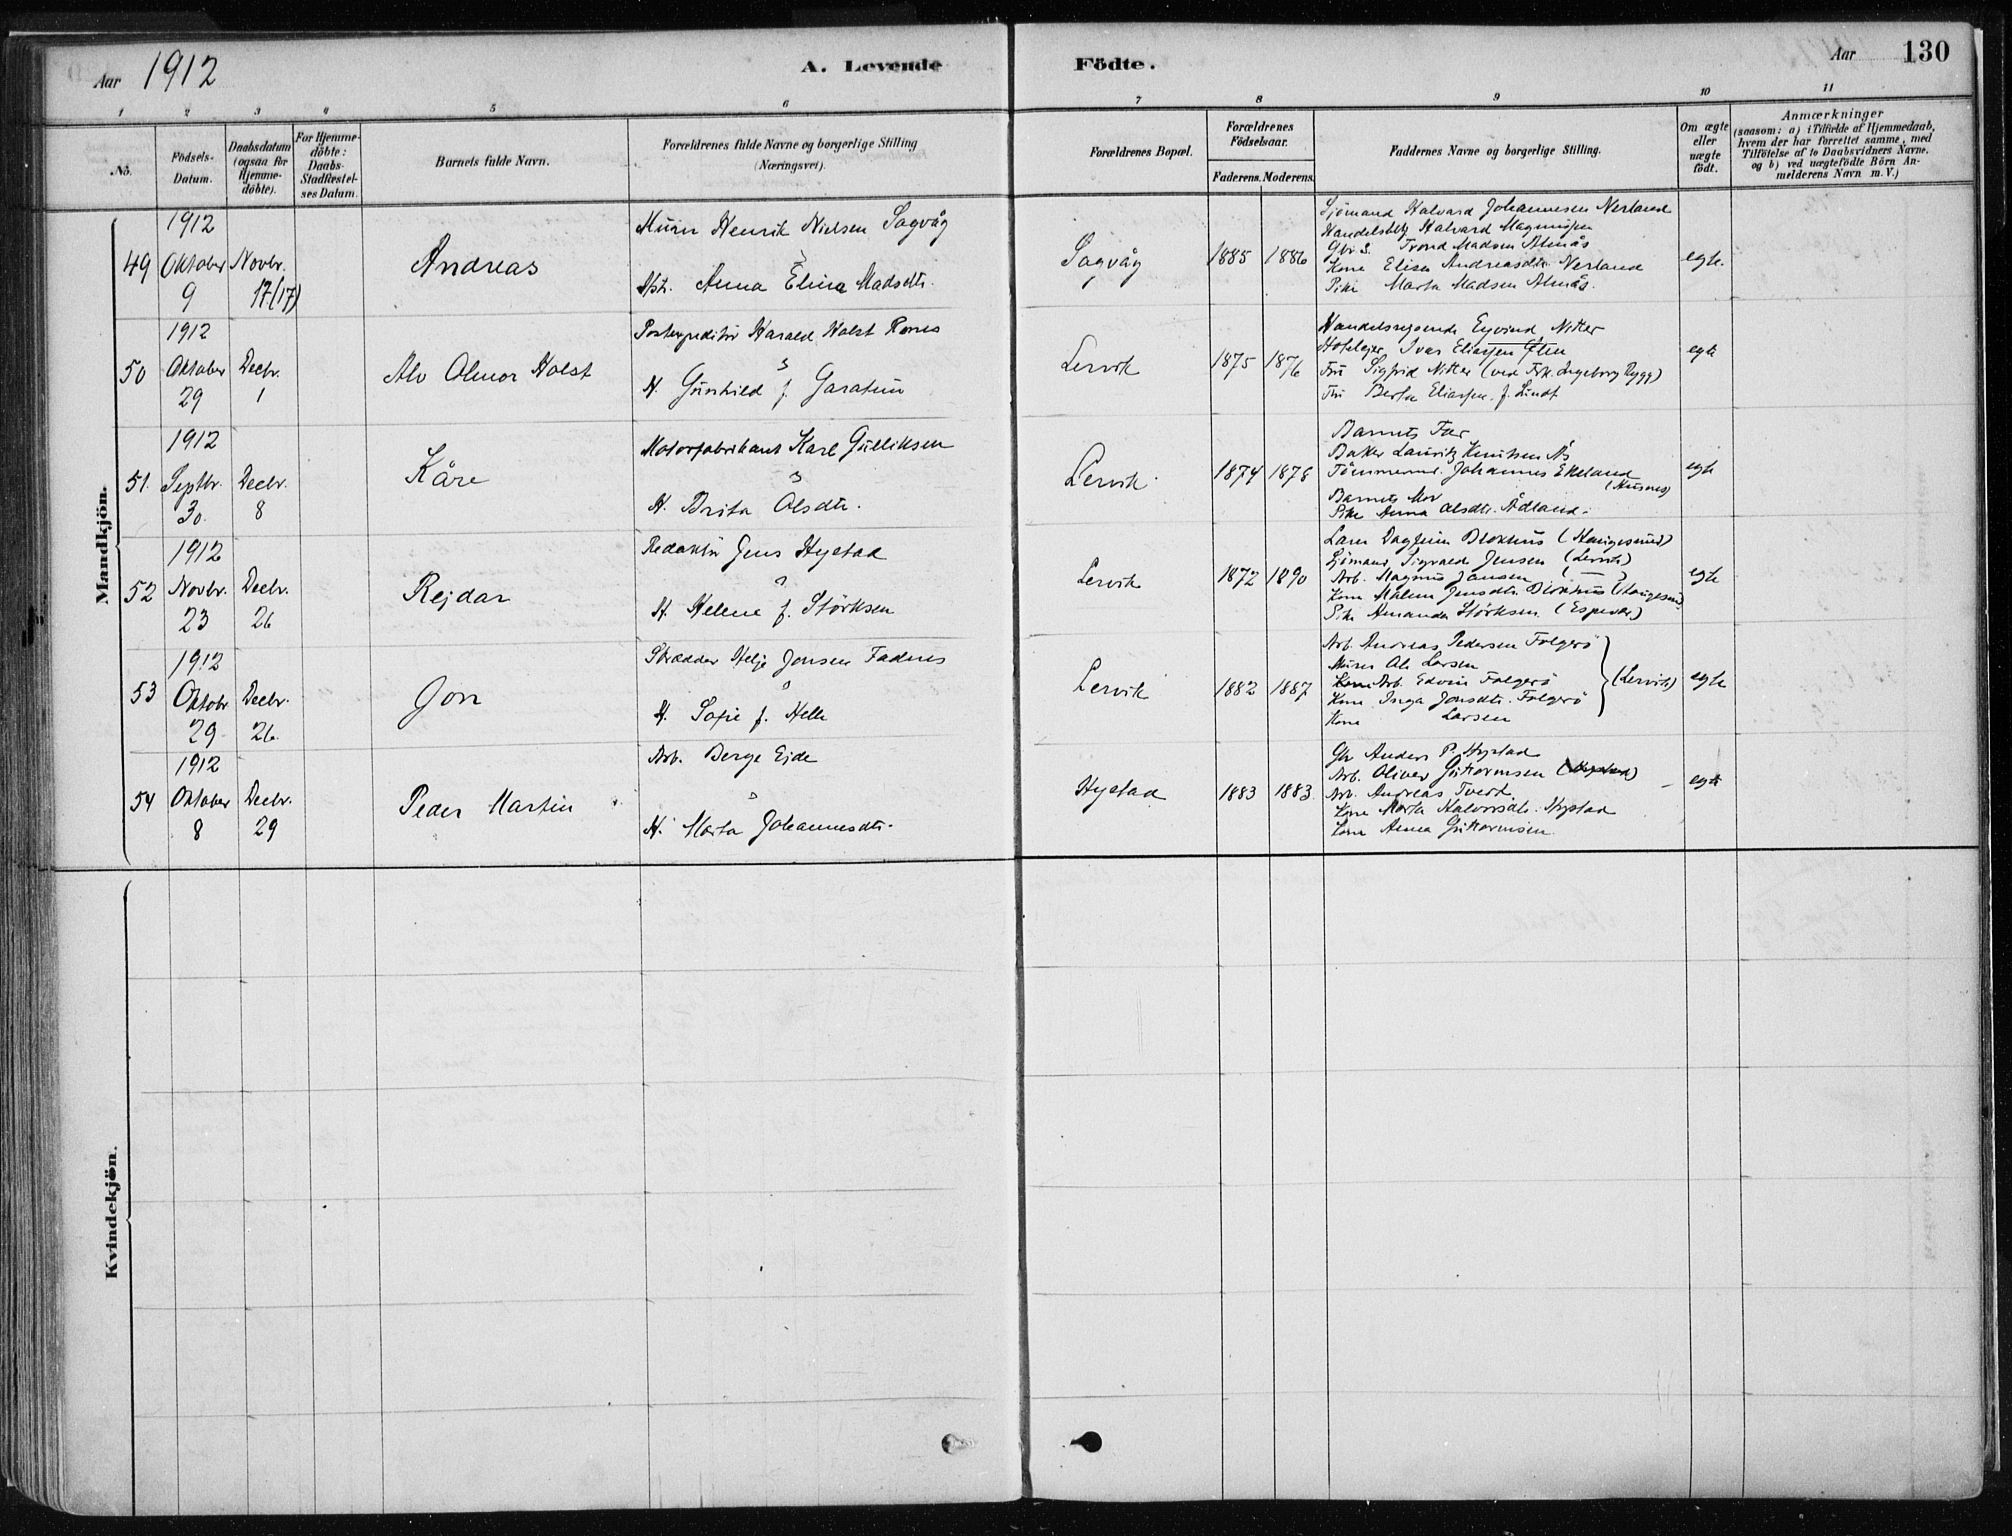 Aar 1912 A. Levende Födte. Aar 130
1 2 3 4 5 6 7 8 9 10 11
No.
Födsels-Datum.
Daabsdatum (ogsaa for Hjemme-döbte).
For Hjemme-döbte: Daabs-Stadfæstel-ses Datum.
Barnets fulde Navn.
Forældrenes fulde Navne og borgerlige Stilling
(Næringsvei).
Forældrenes Bopæl.
Forældrenes Födselsaar.
Faderens. Moderens.
Faddernes Navne og borgerlige Stilling.
Om ægte eller uægte födt.
Anmærkninger
(saasom: a) i Tilfælde af Hjemmedaab, hvem der har forrettet samme, med Tilföielse af to Daabsvidners Navne, og b) ved uægtefödte Börn An-melderens Navn m. V.)
Mandkjön.
49
1912 Oktober 9
Novbr. 17 (17)
Andreas
Murer Henrik Nielsen Sagvåg
Anna Elina Madsdtr.
Sagvåg
1885 1886
Sjömand Halvard Johannesen Nerland
Handelsbetj Halvard Magnussen
Gbr S. Trond Madsen Almås
Kone Elisa Andreasdtr Nerland
Pike Marta Madsen Almås.
egte.
50
1912 Oktober 29
Decbr. 1
Alv Olmor Holst
Postexpeditör Harald Holst Rones
H. Gunhild f. Garatun
Lervik
1875 1876
Handelsreisende Eyvind Nitter
Hotelejer Ivar Eliassen
Fru Sigfrid Nitter (ved Frk. Ingeborg Rygg)
Fru Berta Eliassen f. Lindt
egte
51.
1912 Septbr. 30.
Decbr. 8
Kåre
Motorfabrikant Karl Gulliksen
H. Brita Olsdtr.
Lervik
1874 1878
Barnets Far
Baker Lauritz Knutsen Ås
Tömmerm. Johannes Ekeland
(Husnes)
Barnets Mor
Pike Anna Olsdtr. Ådland.
egte
52
1912 Novbr. 23
Decbr. 26
Rejdar
Redaktör Jens Hystad
H. Helene f. Störksen
Lervik
1872 1890
Dagfinn Blokhus (Haugesund)
Sjömand Sigvald Jensen (Lervik)
Arb. Magnus Jansen ( — )
Kone Malene Jensdtr. Blokhus (Haugesund)
Pike Amanda Störksen (Espevær)
egte
53
1912 Oktobr 29
Decbr. 26.
Jon
Skrædder Helje Jonsen Fadnes
H. Sofie f. Helle
Lervik
1882 1887
Arb. Andreas Pedersen Folgerö
Murer Ole Larsen
Arb. Edvin Folgerö (Lervik)
Kone Inga Jonsdtr. Folgerö
Kone Larsen
egte
54
1912 Oktober 8
Decbr. 29
Peder Martin
Arb. Berge Eide
H. Marta Johannesdtr.
Hystad
1883 1883
Gbr Anders P. Hystad
Arb. Oliver Guttormsen (Hystad)
Arb. Andreas Tveit
Kone Marta Halvorsdtr. Hystad
Kone Anna Guttormsen
egte
Kvindekjön.